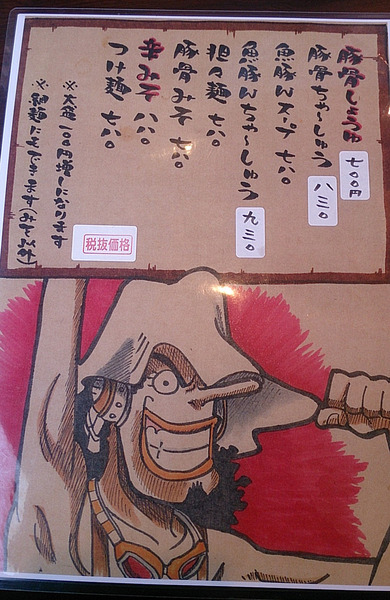 豚骨しょうゆ 七〇〇円
豚骨ちゃーしゅう 八三〇
魚豚んスープ 七八〇
魚豚んちゃーしゅう 九三〇
担々麺 七八〇
豚骨みそ 七八〇
辛みそ 八八〇
つけ麺 七八〇
※大盛一〇〇円増しになります
※細麺にもできます(みそ以外)
税抜価格